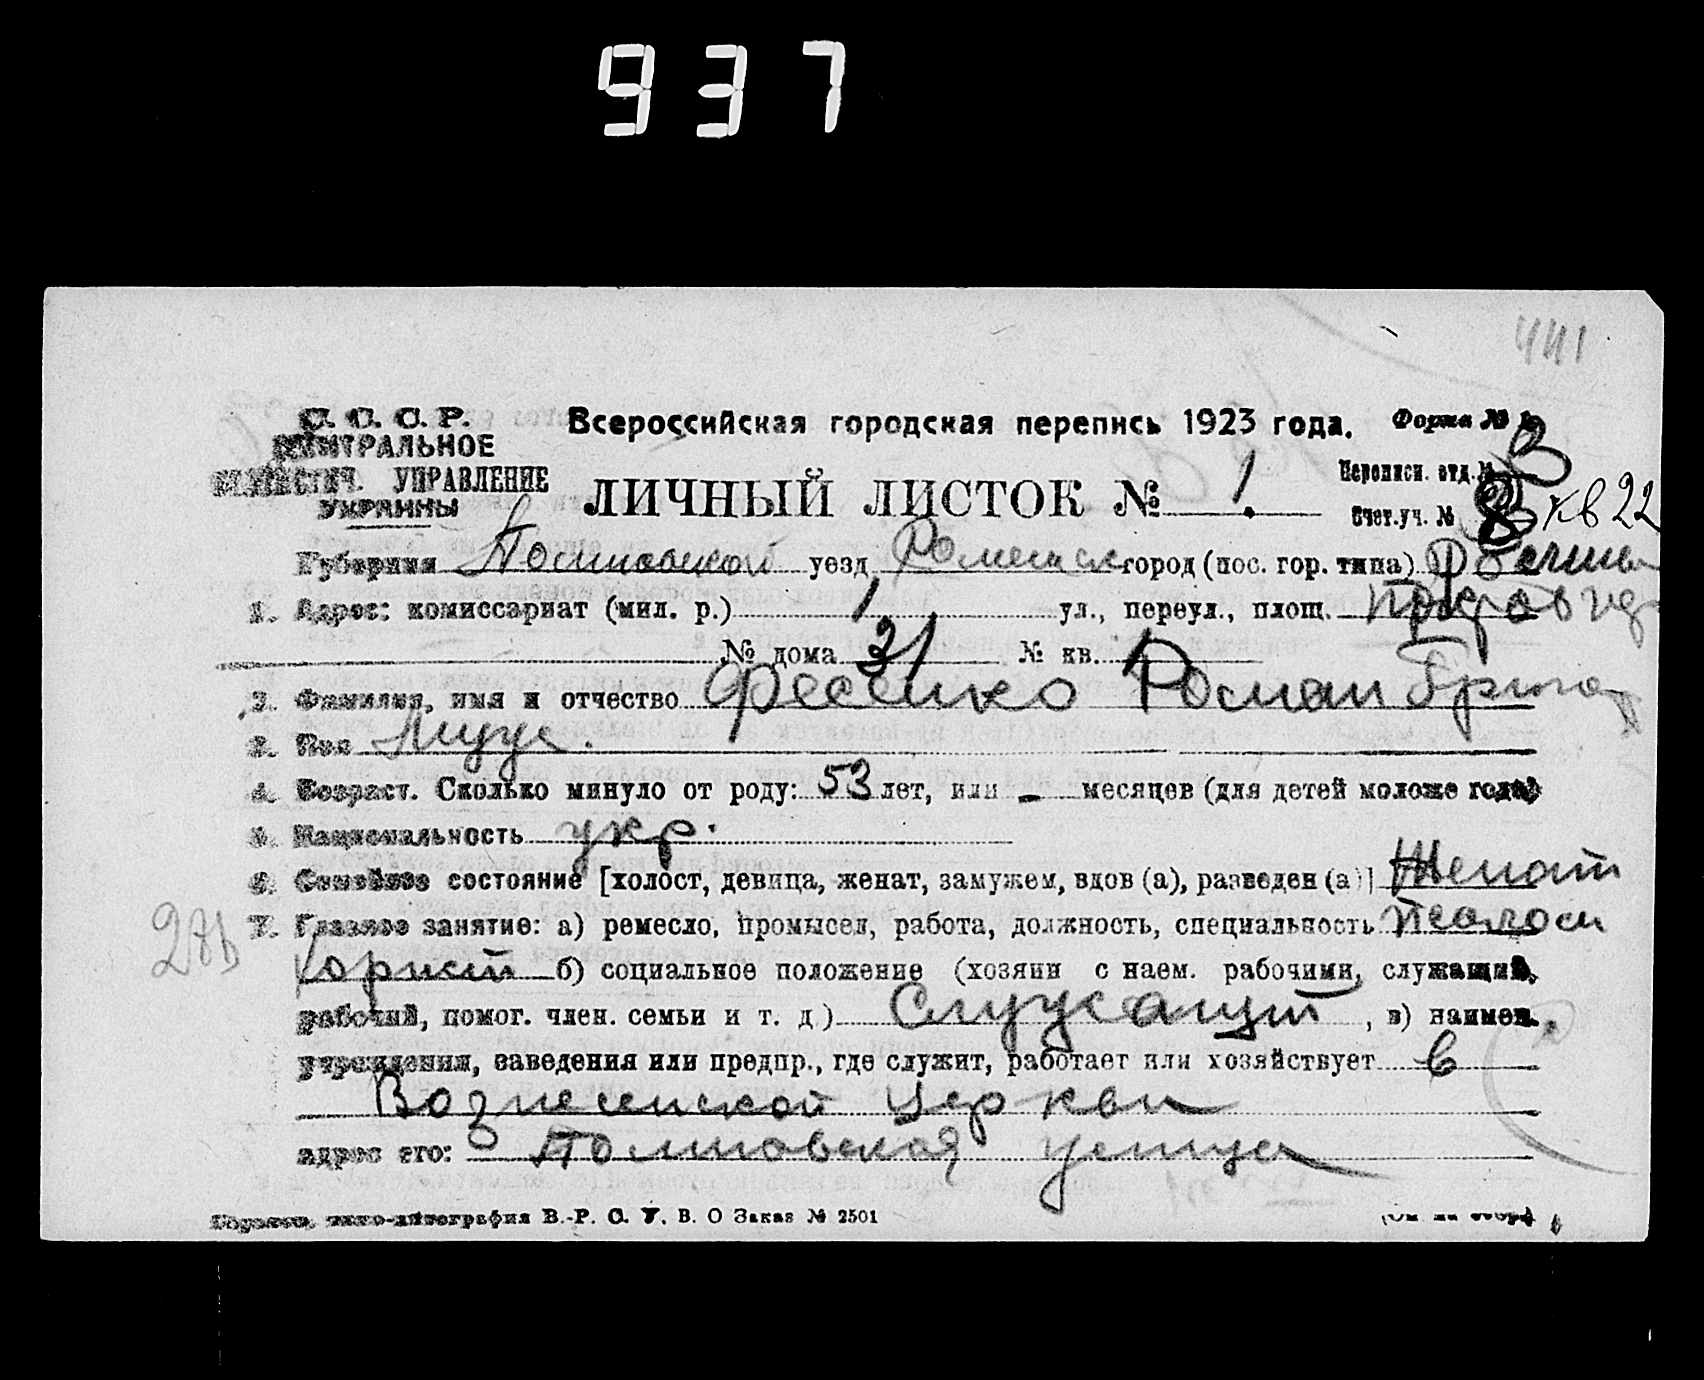 937
441
С. С. С. Р.
ЦЕНТРАЛЬНОЕ
СТАТИСТИЧ. УПРАВЛЕНИЕ
УКРАИНЫ
Всероссийская городская перепись 1923 года.
Форма №
ЛИЧНЫЙ ЛИСТОК № 1.
Переписн. отд. №
Счет. уч. № 8 кв 22
Губерния Полтавской уезд Роменск город (пос. гор. типа)
1. Адрес: комиссариат (мил. р.) 1 ул., переул., площ.
№ дома 31 № кв. 1
2. Фамилия, имя и отчество Фесенко Роман Григо
3. Пол Муж.
4. Возраст. Сколько минуло от роду: 53 лет, или - месяцев (для детей моложе года)
5. Национальность укр.
6. Семейное состояние [холост, девица, женат, замужем, вдов (а), разведен (а)] Женат
7. Главное занятие: а) ремесло, промысел, работа, должность, специальность
б) социальное положение (хозяин с наем. рабочими, служащий,
рабочий, помог. член. семьи и т. д) Служащий, в) наимен.
учреждения, заведения или предпр., где служит, работает или хозяйствует в
Вознесенской Церкви
адрес его: Полтавская улица
типо-литография В.-Р. С. У. В. О Заказ № 2501